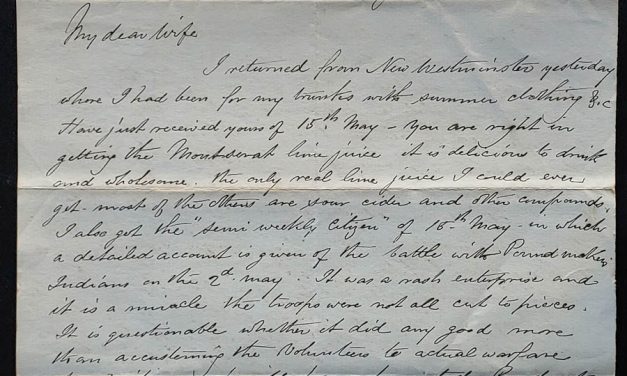 My dear Wife
I returned from New Westminster yesterday
where I had been for my trunks with summer clothing &c
Have just received yours of 15th May – You are right in
getting the Montserat lime juice it is delicious to drink
and wholesome. the only real lime juice I could ever
get. most of the others are sour cider and other compounds.
I also got the "semi weekly Citizen" of 16th May - in which
a detailed account is given of the battle with Poundmakers
Indians on the 2d may. It was a rash enterprise and
it is a miracle the troops were not all cut to pieces.
It is questionable whether it did any good more
than accustoming the Volunteers to actual warfare